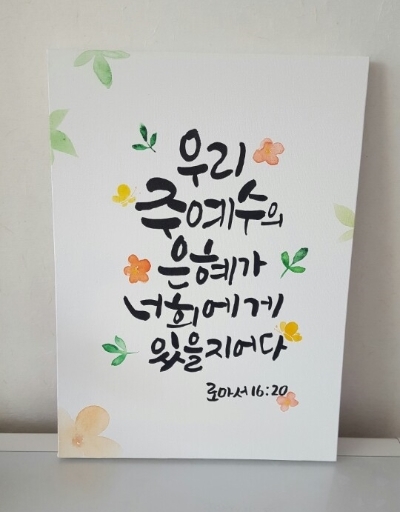 우리
주예수의
은혜가
너희에게
있을지어다
로마서 16:20